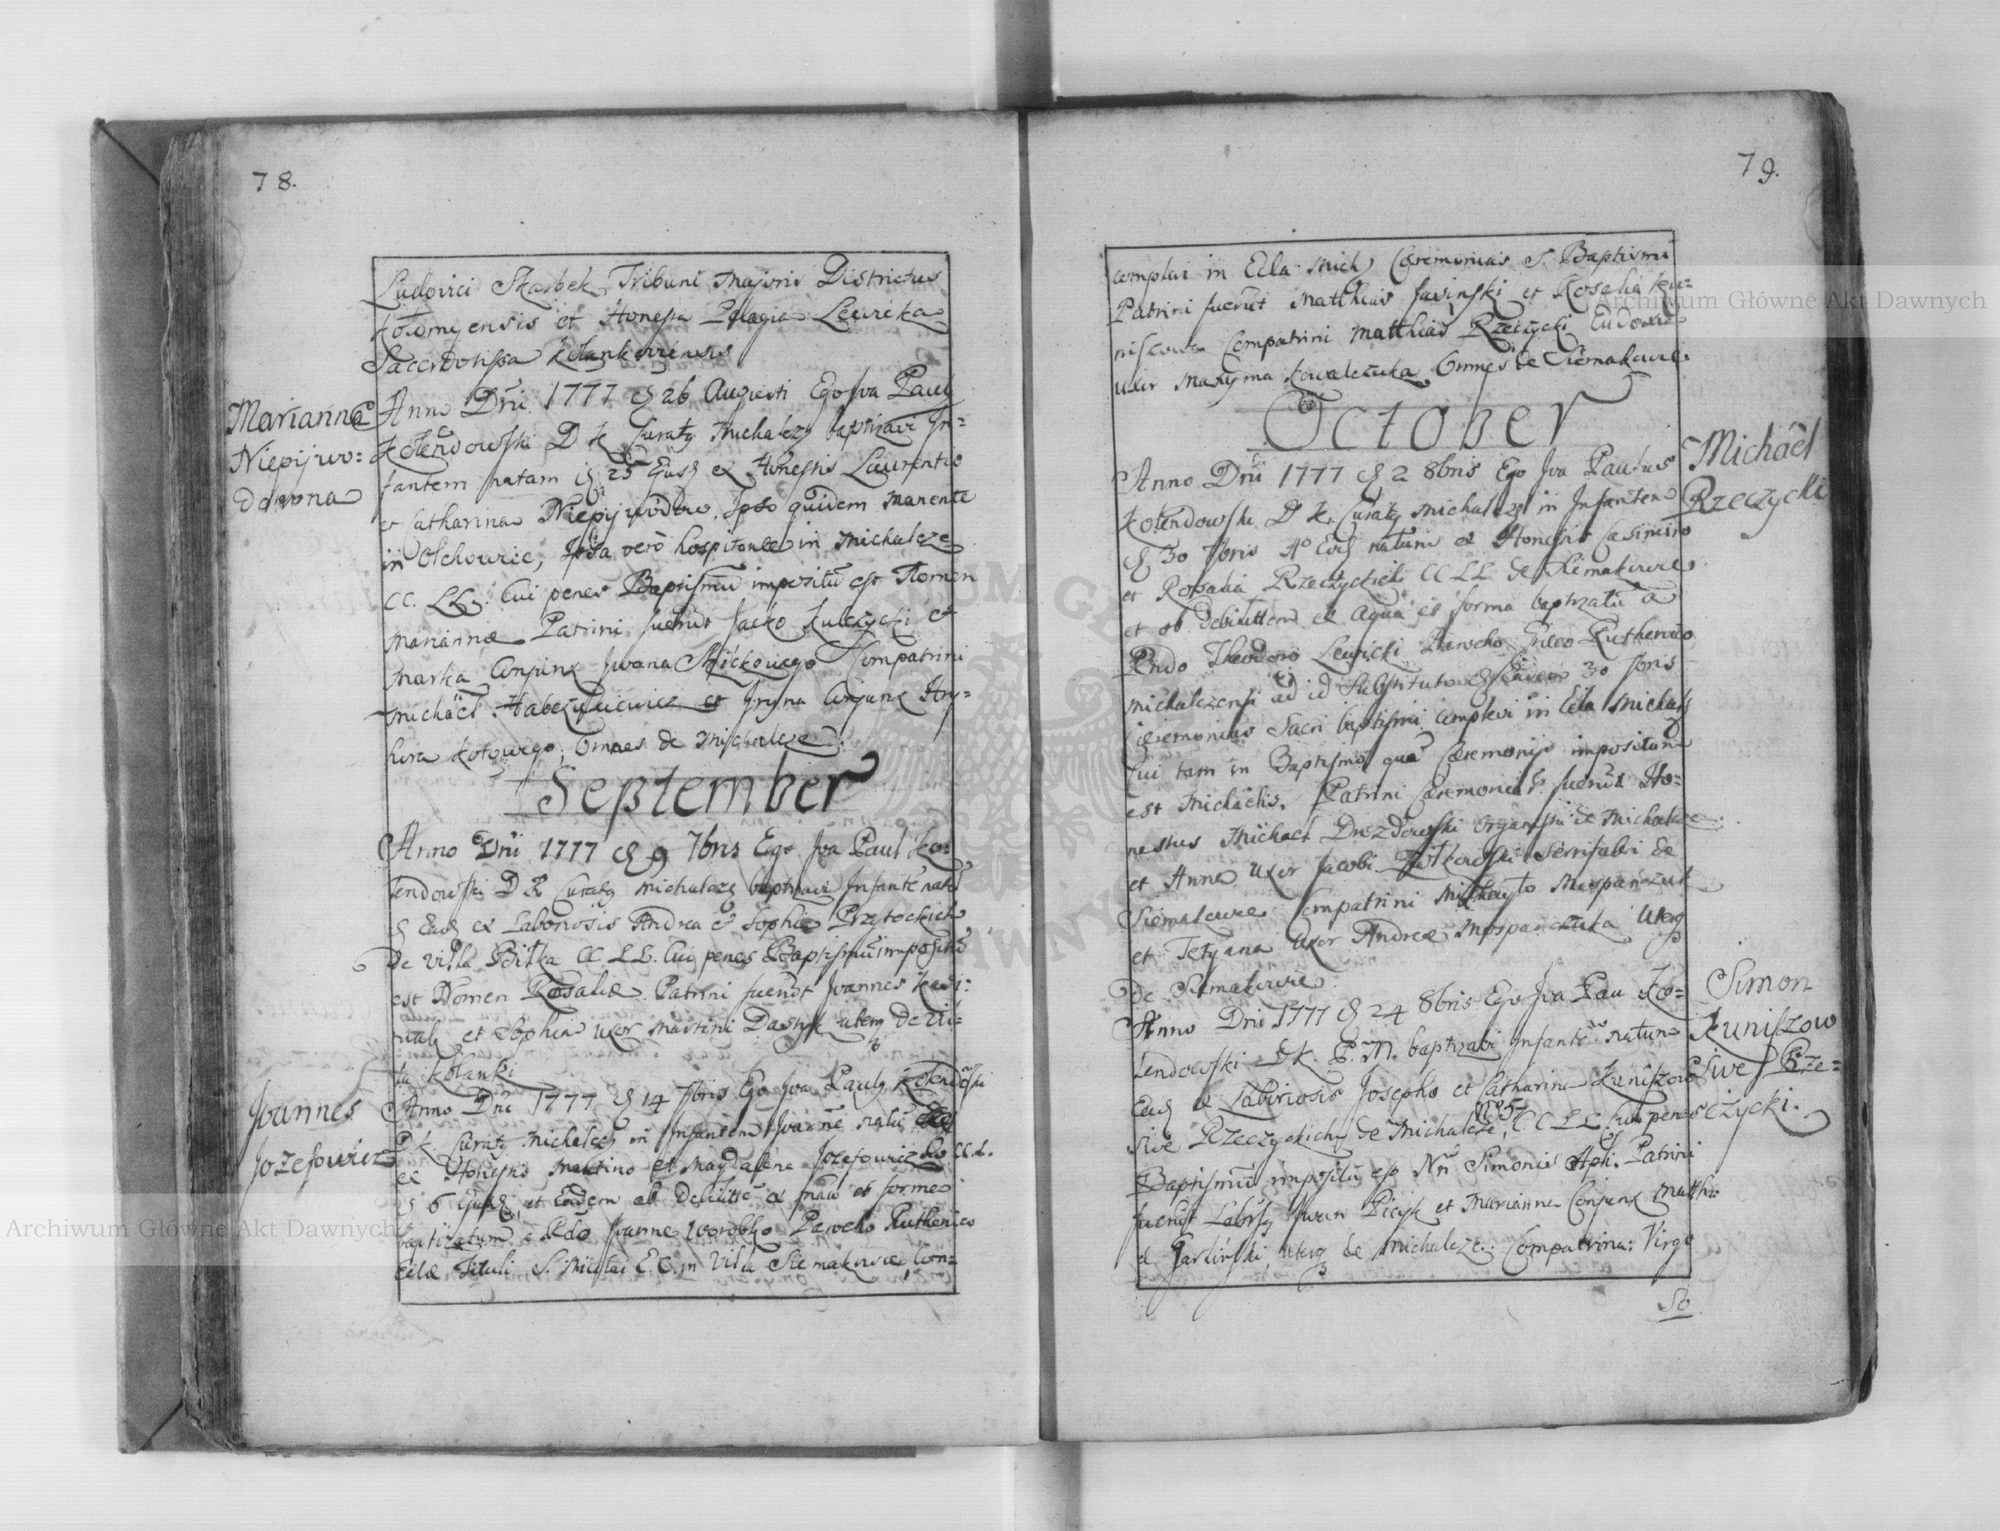 78.
Ludovici Skarbek Tribuni Majoris Districtus
Kołomyensis et Honesta Pelagia Lewicka
Sacerdotissa
Marianna
Niepijwo=
downa
Anno Dñi 1777 26 Augusti Ego Iva Paul9
Kolendowski D K Curat9 Michalcz baptizavi In=
fantem natam 25 Ejusd ex Honestis Laurentio
et Catharina Niepijwodow. Ipso quidem manente
in Olchowiec, Ipsa vero hospitante in Michalcze
CC. LL. Cui penes Baptismũ impositũ est Nomen
Mariannæ Patrini fuerũt Jacko Kulczycki et
Marka Conjunx Iwana Compatrini
Michäel et Iryna Conjunx Hry=
hora Kotowego, Omnes de Michalcze
September
Anno Dñi 1777 9 7bris Ego Iva Paul Ko=
lendowski D K Curat9 Michalcz baptizavi Infantẽ natã
Ead ex Laboriosis Andrea et Sophia Przytockich
De villa Bitka CC LL. Cui penes Baptismũ impositũ
est Nomen Rosaliæ. Patrini fuerũt Joannes
et Sophia uxor Martini uterq De vil=
la
Joannes
Jozefowicz
Anno Dñi 1777 14 7bris Ego Iva Paul9 Kolendowski
D K Curat9 Michalcz in Infantem Joannẽ natũ
ex Honestis Martino et Magdalena Jozefowicz CC.L.
6 Ejusd, et Eodem ob Debilitẽ ex et forma
baptizatum a Rdo Joanne Worobko Parocho Ruthenico
Eclæ Tituli S. Nicolai E. C. in Villa Siemakowce, Com=
79.
complevi in Ecla Mich Cæremonias S. Baptismi
Patrini fuerũt Matthias et Rosalia Ku=
niszowa Compatrini Matthias Rzeczycki Eudowia
uxor Maxyma Kowalczuka Omnes de Siemakowce.
October
Michäel
Rzeczycki
Anno Dñi 1777 2 8bris Ego Iva Paulus
Kolendowski D K. Curat9 Michalcz in Infantem
30 7bris Aº Eod natum ex Honestis Casimiro
et Rosalia Rzeczyckich CC LL de Siemakowce
et ob debilittem ex aqua et forma baptizatũ a
Rndo Theodoro Lewicki Parocho Græco Rutheno
Michalczensi ad id Substituto Eadem 30 7bris
Cæremonias Sacri baptismi complevi in Ecla Michalcz
Cui tam in Baptismo quã Cæremonijs impositum
est Michäelis. Patrini Cæremoniarũ fuerũt Ho=
nestus Michael Drozdowski Organista de Michalcze
et Anna Uxor Jacobi Serrifabri de
Siemakowce Compatrini Michayło
et Tetyana Uxor Andreæ Uterq
De Siemakowce
Simon
Kuniszow
Sive Rze=
czycki.
Anno Dñi 1777 24 8bris Ego Iva Pau Ko=
lendowski D K. P. M. baptizavi Infantẽ natum
Ead ex Laboriosis Josepho et Catharina Kuniszow
sive Rzeczyckich de Michalcze, Nº 5 CC LL Cui penes
Baptismũ impositũ est Nñ Simonis Apli. Patrini
fuerũt Iwan et Marianna Conjunx Matthi
uterq de Michalcze. Compatrina: Virgo
80
Archiwum Główne Akt Dawnych
Archiwum Główne Akt Dawnych